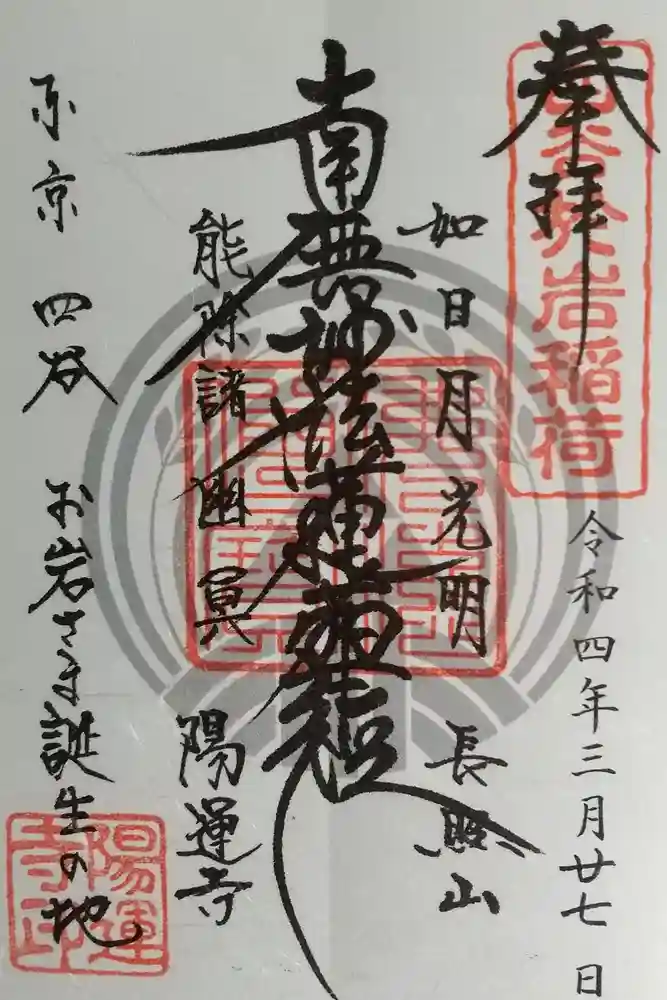 奉拝
於岩稲荷
令和四年三月廿七日
如日月光明
長照山
南無妙法蓮華経
能除諸幽冥
陽運寺
東京 四谷
お岩さま誕生の地
陽運寺印